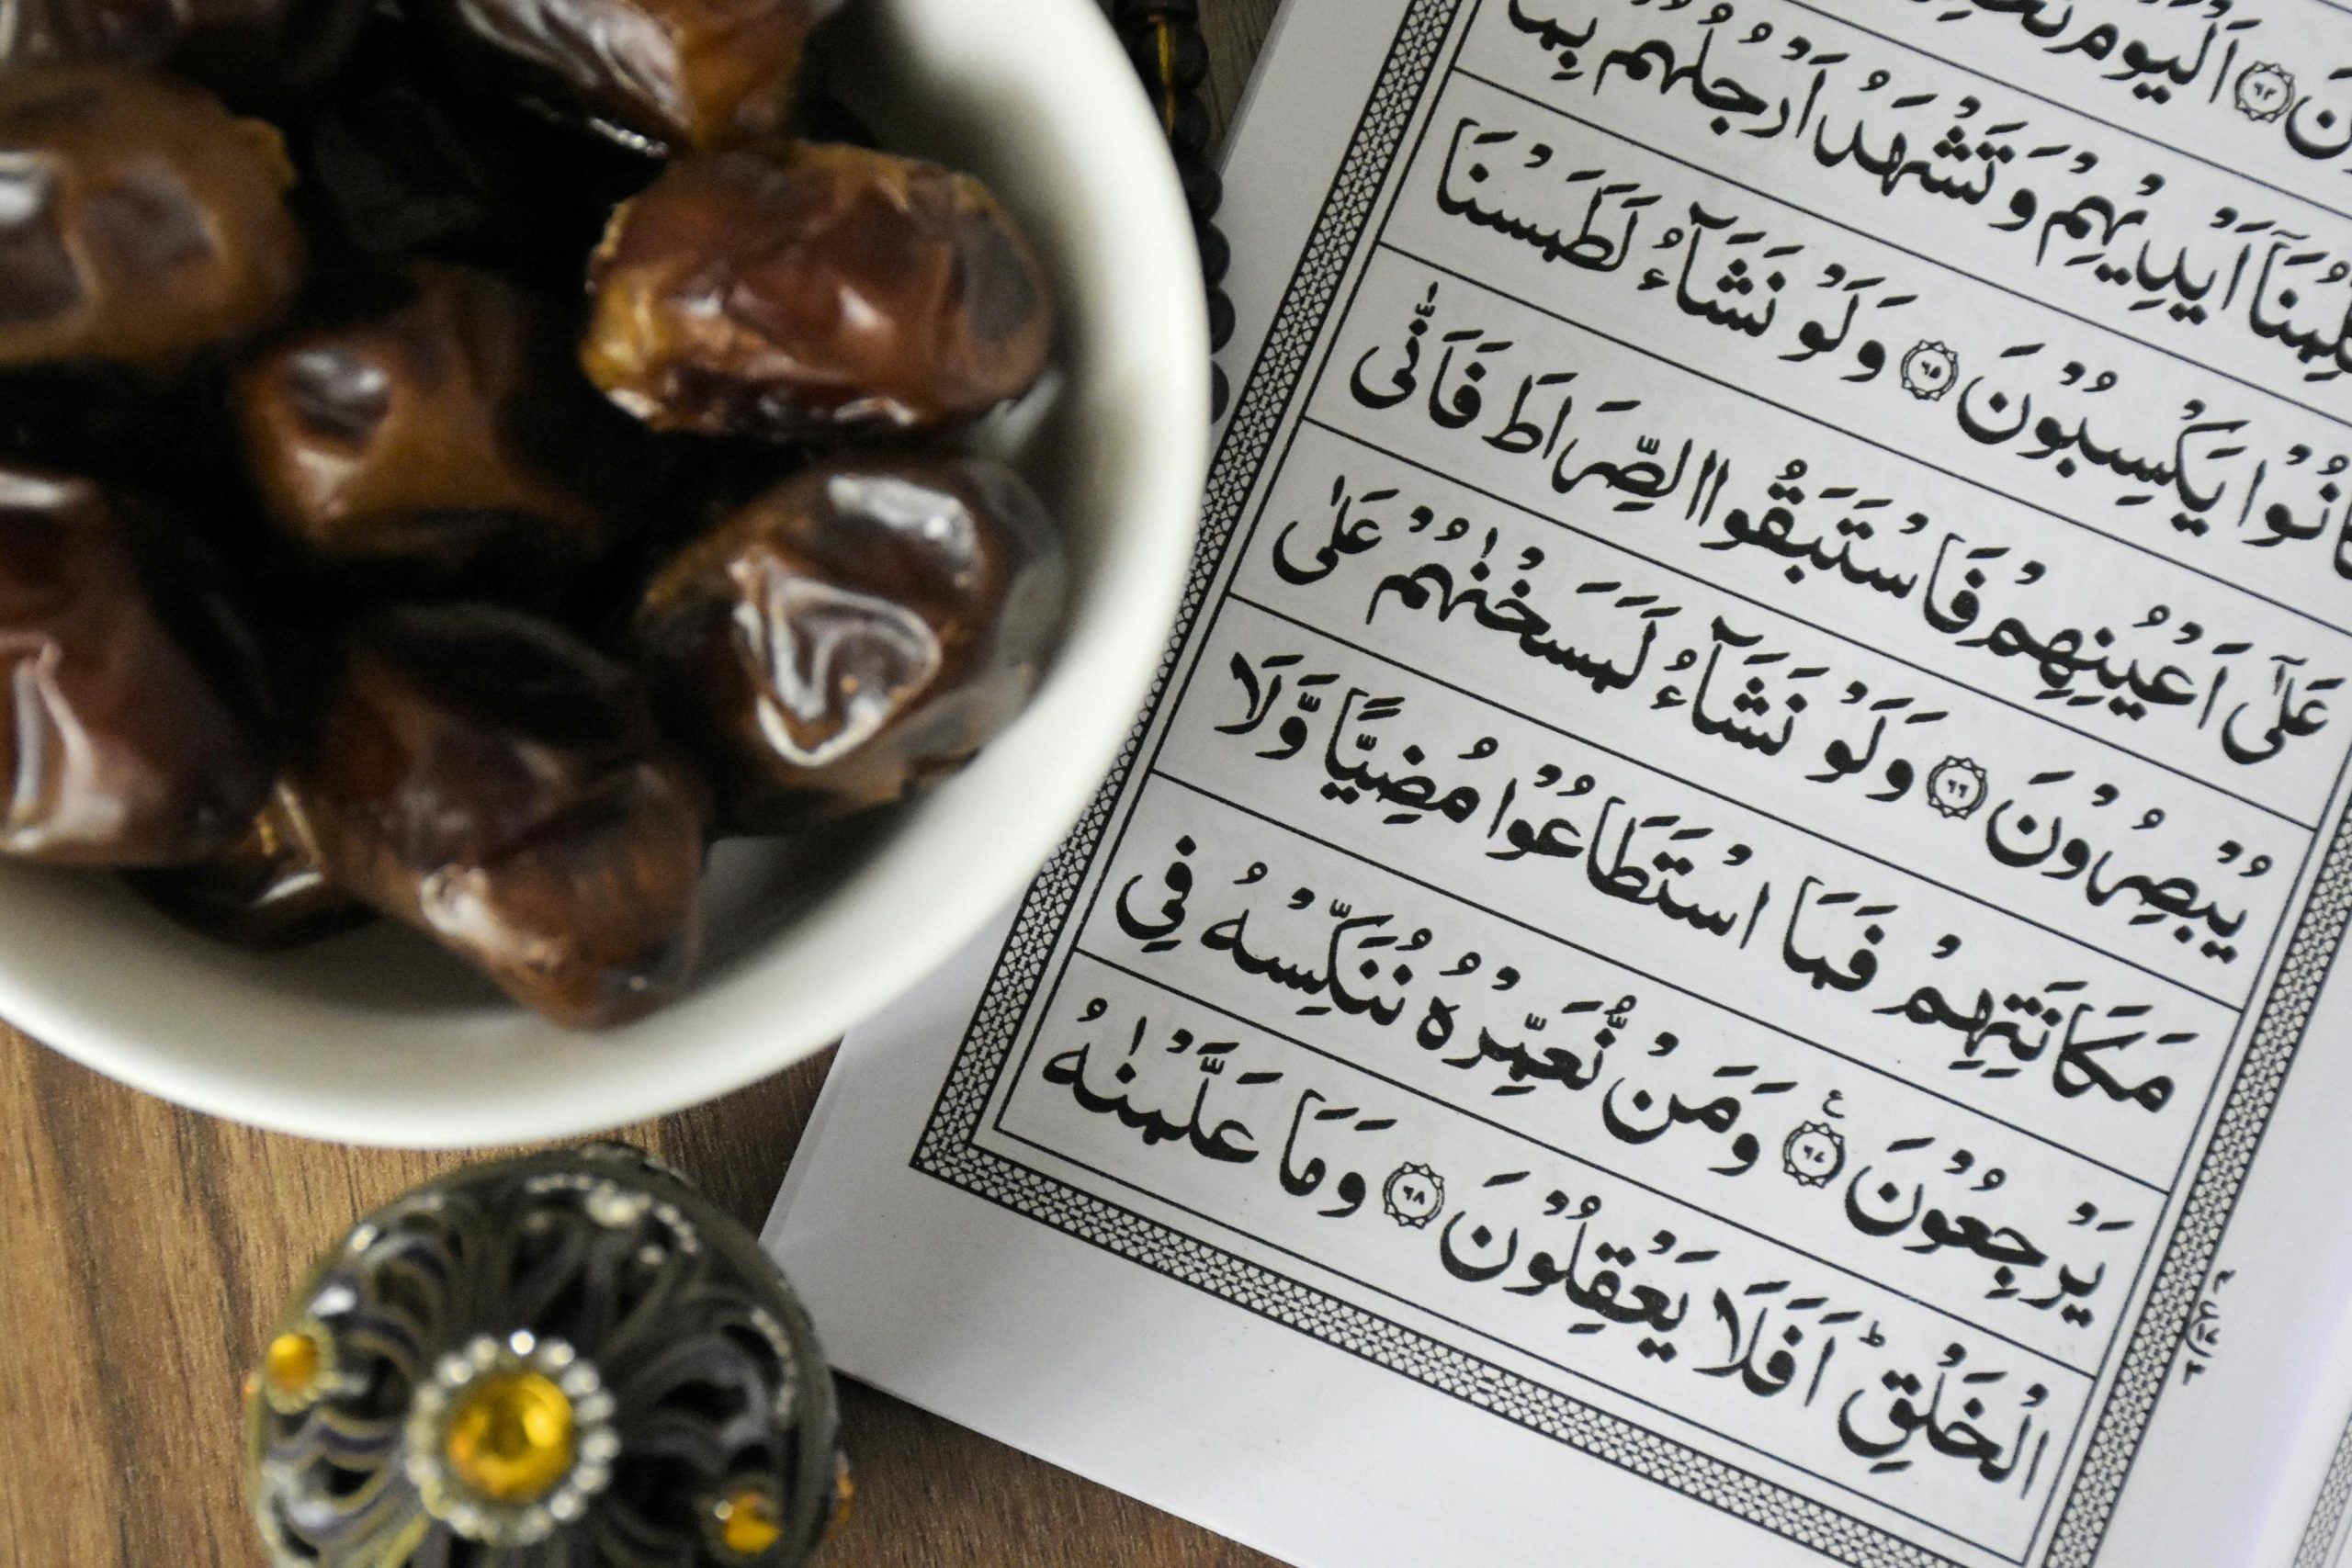 اَلْيَوْمَ ﴿۶۴﴾
اَيْدِيْهِمْ وَتَشْهَدُ اَرْجُلُهُمْ بِمَا
يَكْسِبُوْنَ ﴿۶۵﴾ وَلَوْ نَشَآءُ لَطَمَسْنَا
عَلٰٓى اَعْيُنِهِمْ فَاسْتَبَقُوا الصِّرَاطَ فَاَنّٰى
يُبْصِرُوْنَ ﴿۶۶﴾ وَلَوْ نَشَآءُ لَمَسَخْنٰهُمْ عَلٰى
مَكَانَتِهِمْ فَمَا اسْتَطَاعُوْا مُضِيًّا وَّلَا
يَرْجِعُوْنَ ﴿۶۷﴾ وَمَنْ نُّعَمِّرْهُ نُنَكِّسْهُ فِي
الْخَلْقِ ؕ اَفَلَا يَعْقِلُوْنَ ﴿۶۸﴾ وَمَا عَلَّمْنٰهُ